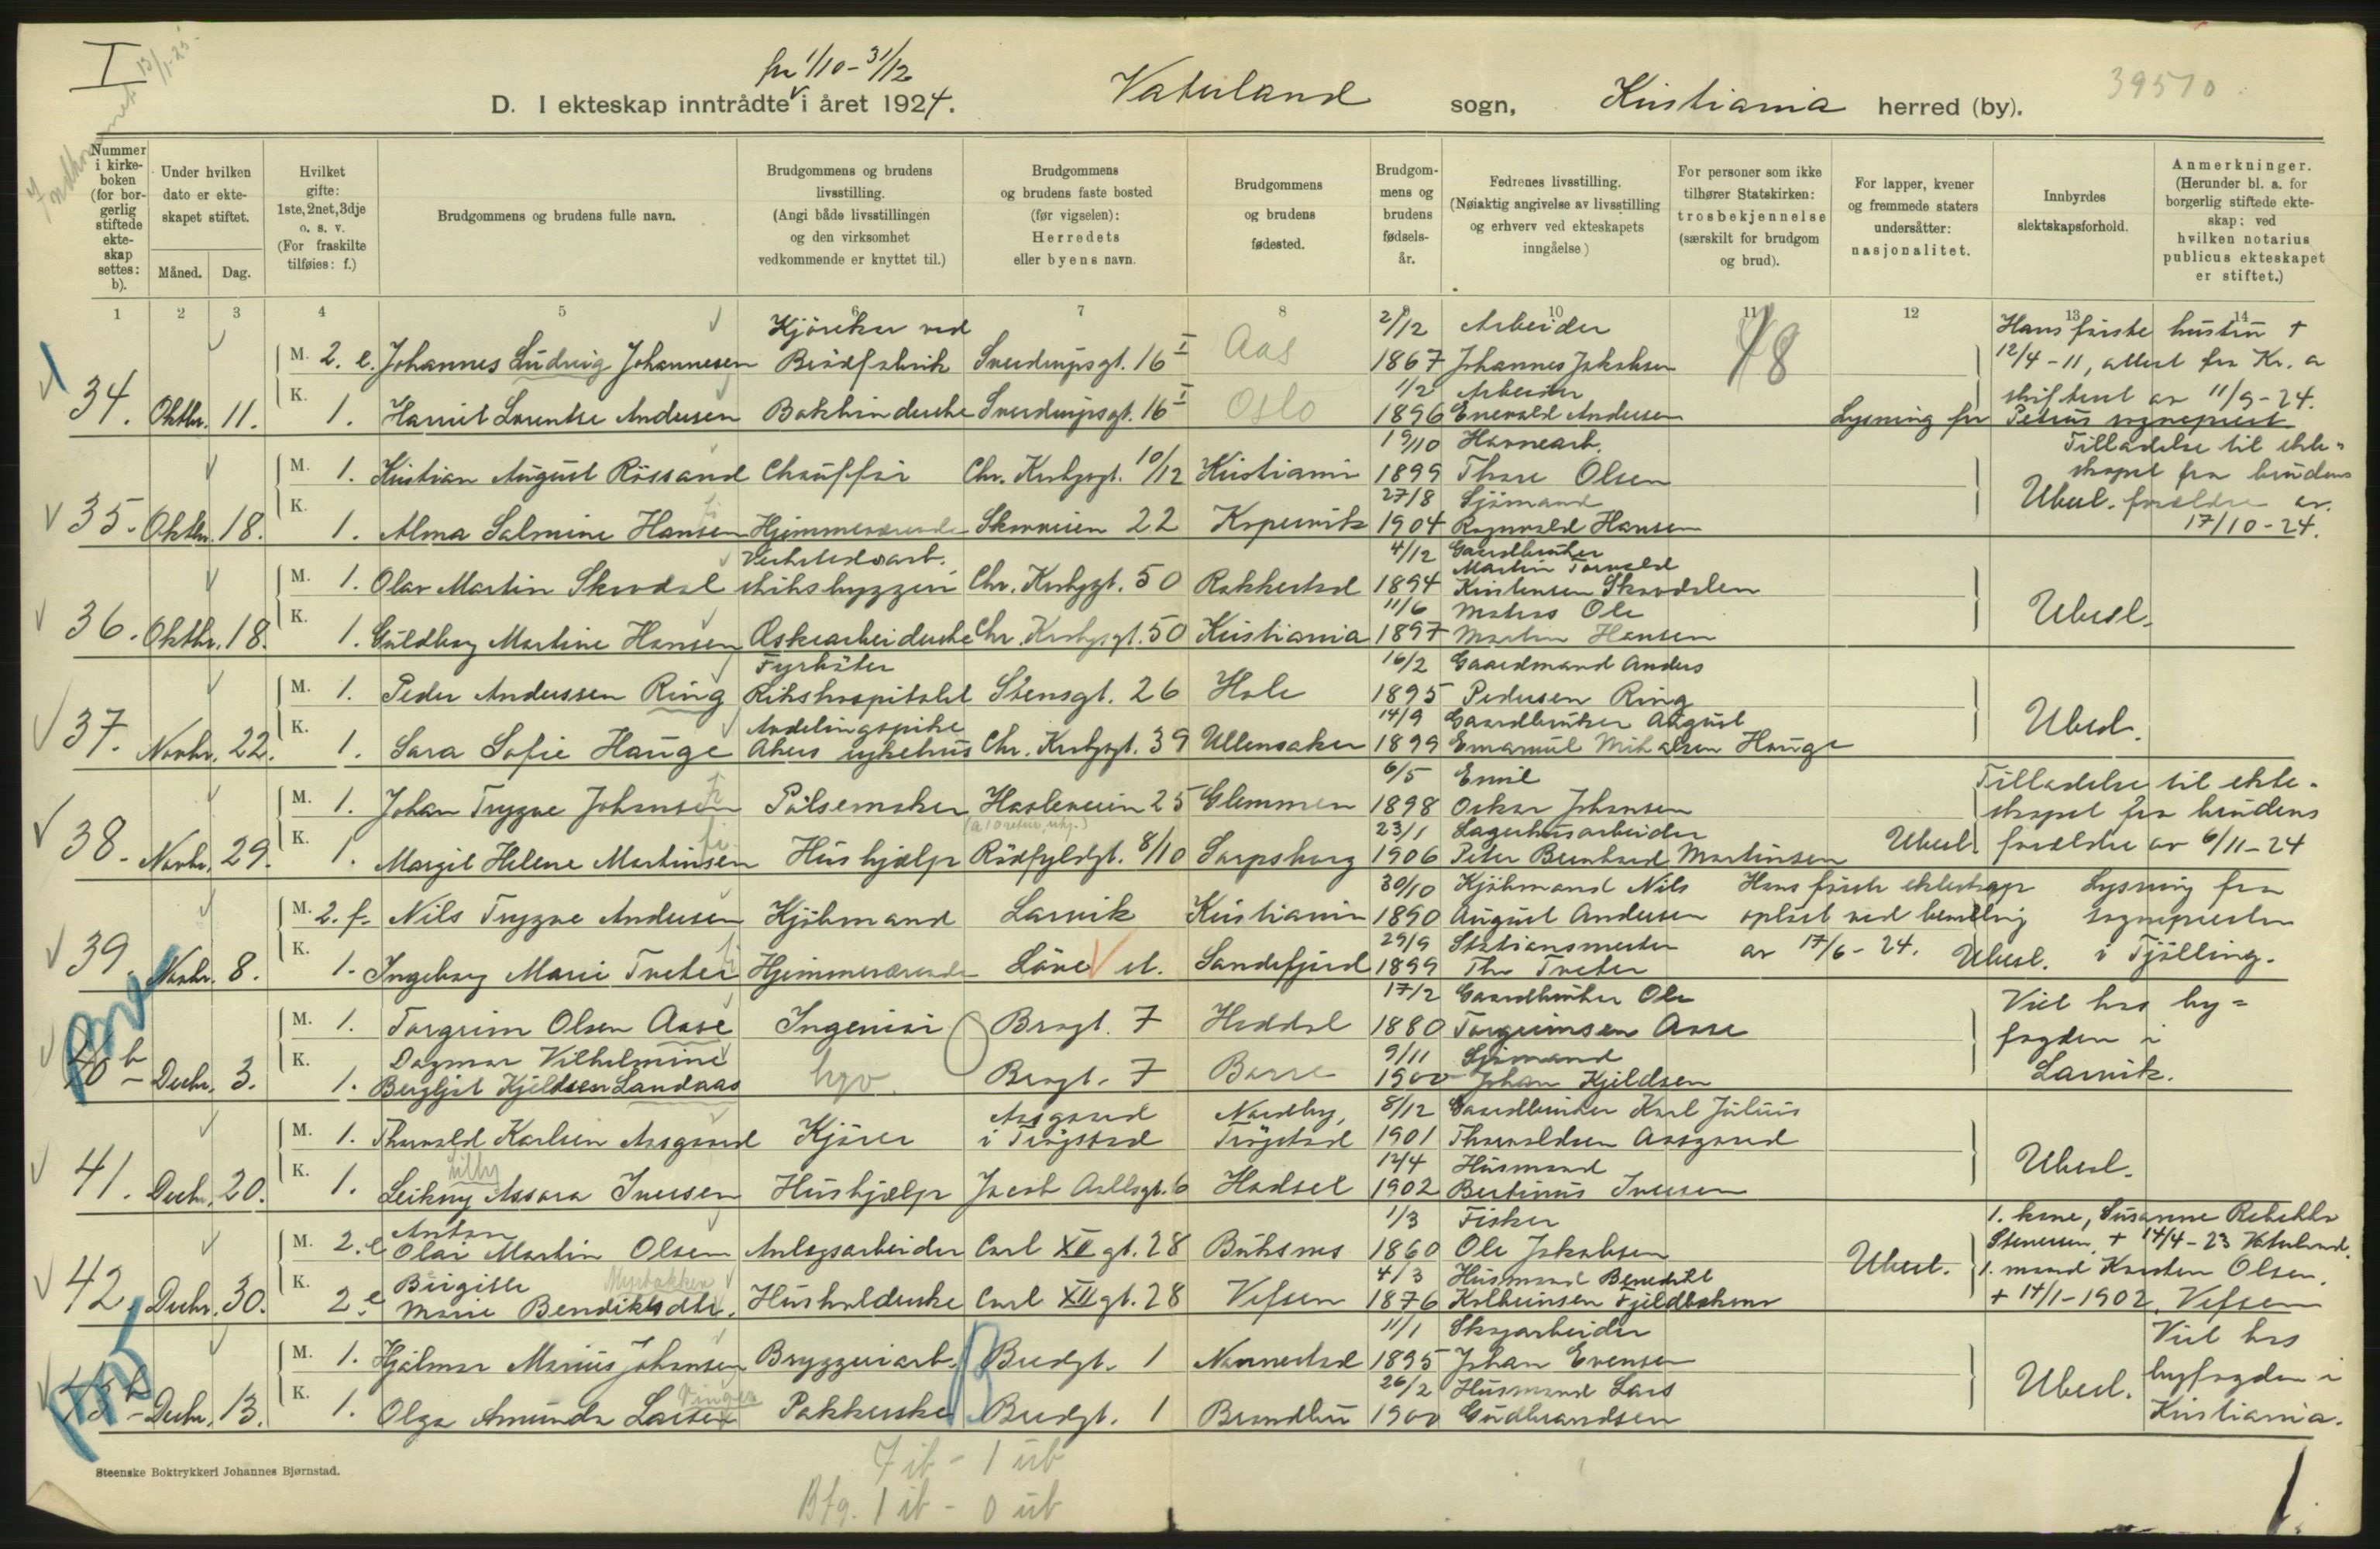 I
13/1-25
39510
fra 1/10 - 31/12
D. I ekteskap inntrådte i året 1924. Vaterland sogn, Kristiania herred (by).
Nummer i kirkeboken (for borgerlig stiftede ekteskap settes: b).
Under hvilken dato er ekteskapet stiftet.
Måned. Dag.
Hvilket gifte: 1ste, 2net, 3dje o. s. v. (For fraskilte tilføies: f.)
Brudgommens og brudens fulle navn.
Brudgommens og brudens livsstilling. (Angi både livsstillingen og den virksomhet vedkommende er knyttet til.)
Brudgommens og brudens faste bosted (før vigselen): Herredets eller byens navn.
Brudgommens og brudens fødested.
Brudgommens og brudens fødselsår.
Fedrenes livsstilling. (Nøiaktig angivelse av livsstilling og erhverv ved ekteskapets inngåelse)
For personer som ikke tilhører Statskirken: trosbekjennelse (særskilt for brudgom og brud).
For lapper, kvener og fremmede staters undersåtter: nasjonalitet.
Innbyrdes slektskapsforhold.
Anmerkninger. (Herunder bl. a. for borgerlig stiftede ekteskap: ved hvilken notarius publicus ekteskapet er stiftet.)
1 2 3 4 5 6 7 8 10 11 12 13 14
Kjörekar ved 2/12 Arbeider Hans förste hustru †
M. 2. e. Johannes Ludvig Johannesen Brödfabrik Sverdrupsgt. 16 I Aas 1867 Johannes Jakobsen 48 12/4-11, attest fra Kr. a
1/2 Arbeider skifteret av 11/9-24.
34. Oktbr. 11. K. 1. Harriet Lorentse Andersen Bokbinderske Sverdrupsgt. 16 I Oslo 1896 Enevald Andersen Lysning fra Petrus sogneprest
19/10 Havnearb. Tilladelse til ekte-
M. 1. Kristian August Rössand Chaufför Chr. Krohgsgt. 10/12 Kristiania 1899 Thore Olsen skapet fra brudens
27/8 Sjömand Ubesl. forældre av
35. Oktbr. 18. K. 1. Alma Salmine Hansen Hjemmeværende Skovveien 22 Kopervik 1904 Ragnvald Hansen 17/10-24.
Verkstedsarb. 4/12 Gaardbruker
Martin Torvald
M. 1. Olav Martin Skovdal skibsbyggeri Chr. Krohgsgt. 50 Rakkestad 1894 Kristensen Skovdalen
11/6 Matros Ole Ubesl.
36. Oktbr. 18. K. 1. Guldborg Martine Hansen Æskearbeiderske Chr. Krohgsgt. 50 Kristiania 1897 Martin Hansen
Fyrböter 16/2 Gaardmand Anders
M. 1. Peder Anderssen Ring Rikshospitalet Stensgt. 26 Hole 1895 Pedersen Ring
Avdelingspike 14/9 Gaardbruker August Ubesl.
37. Novbr. 22. K. 1. Sara Sofie Hauge Akers sykehus Chr. Krohgsgt. 39 Ullensaker 1899 Emanuel Mikalsen Hauge
6/5 Emil Tilladelse til ekte-
M. 1. Johan Trygve Johansen Pölsemaker Hasleveien 25 Glemmen 1898 Oskar Johansen skapet fra brudens
23/1 Lagerhusarbeider
38. Novbr. 29. K. 1. Margit Helene Martinsen Hushjælp Rödfyldgt. 8/10 Sarpsborg 1906 Peter Bernhard Martinsen Ubesl. forældre av 6/11-24
30/10 Kjöbmand Nils Hans förste ekteskap Lysning fra
M. 2. f. Nils Trygve Andersen Kjöbmand Larvik Kristiania 1890 August Andersen oplöst ved bevilling sognepresten
29/9 Stationsmester av 17/6-24. Ubesl. i Tjölling.
39. Novbr. 8. K. 1. Ingeborg Marie Tveter Hjemmeværende Löve st. Sandefjord 1899 Thv Tveter
17/2 Gaardbruker Ole Viet hos by-
M. 1. Torgrim Olsen Aase Ingeniör Brogt. 7 Heddal 1880 Torgrimsen Aase fogden i
Dagmar Vilhelmine 9/11 Sjömand Larvik.
40 b Decbr. 3. K. 1. Bergljot Kjeldsen Landaas hjv. Brogt. 7 Borre 1900 Johan Kjeldsen
Aasgaard Nordby, 8/12 Gaardbruker Karl Julius
M. 1. Thorvald Karlsen Aasgaard Kjörer i Trögstad Trögstad 1901 Thorvaldsen Aasgaard
Lilly 12/4 Husmand Ubesl.
41. Decbr. 20. K. 1. Leikny Assora Iversen Hushjælp Jacob Aallsgt. 6 Hadsel 1902 Bertinius Iversen
Anton 1/3 Fisker 1. kone, Susanne Rebekka
M. 2. e Olai Martin Olsen Anlegsarbeider Carl XII gt. 28 Buksnes 1860 Ole Jakobsen Ubesl. Stenersen † 14/4-23 Vaterland.
Birgitte Myrbakken 4/3 Husmand Benedikt 1. mand Karsten Olsen.
42. Decbr. 30. K. 2. e Marie Bendiktsdtr. Husholderske Carl XII gt. 28 Vefsen 1876 Kolbeinsen Fjeldbakmo † 14/1-1902. Vefsen
11/1 Skogarbeider Viet hos
M. 1. Hjalmar Marius Johansen Bryggeriarb. Bredgt. 1 Nannestad 1895 Johan Evensen byfogden i
Vinger 26/2 Husmand Lars Ubesl. Kristiania.
Decbr. 13. K. 1. Olga Amunda Larsen Pakkerske Bredgt. 1 Brandbu 1900 Gudbrandsen
Steenske Boktrykkeri Johannes Bjørnstad.
7 ib - 1 ub
Bfg. 1 ib - 0 ub
1.